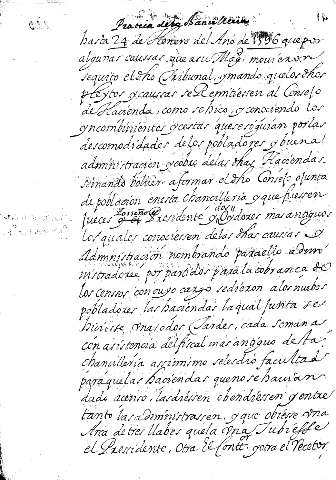 Practica de la Chancilleria
hasta 24 de Henero del Año de 1596 que por
algunas caussas, que a su Magd. movieron
se quito el dho Tribunal, y mando que los dhos
pleytos y caussas se Remitiesen al Consejo
de Hacienda, como se hico, y conociendo los
ynconbinientes y costas que se siguian por las
descomodidades de los pobladores y buena
administracion y cobro de las dhas Haciendas.
Mando bolver a formar el dho Consejo o junta
de poblacion en esta Chancilleria y que fuesen
Jueces el Presidente y dos Oydores mas antiguos
los quales conociesen de las dhas caussas y
Administracion nombrando para ello admi
nistradores por partidos para la cobranca de
los censos con cuyo cargo se dieron a los nuebos
pobladores las haciendas la qual Junta se
hiciese una o dos tardes, cada semana
con asistencia del fiscal mas antiguo de la
chancilleria assimismo se les dio facultad
para que las haciendas que no se havian
dado a censo, las diesen o bendiesen y entre
tanto las administrassen, y que obiese una
Arca de tres llabes que la una tubiesse
el Presidente, Otra El Contor. y otra el Recetor,